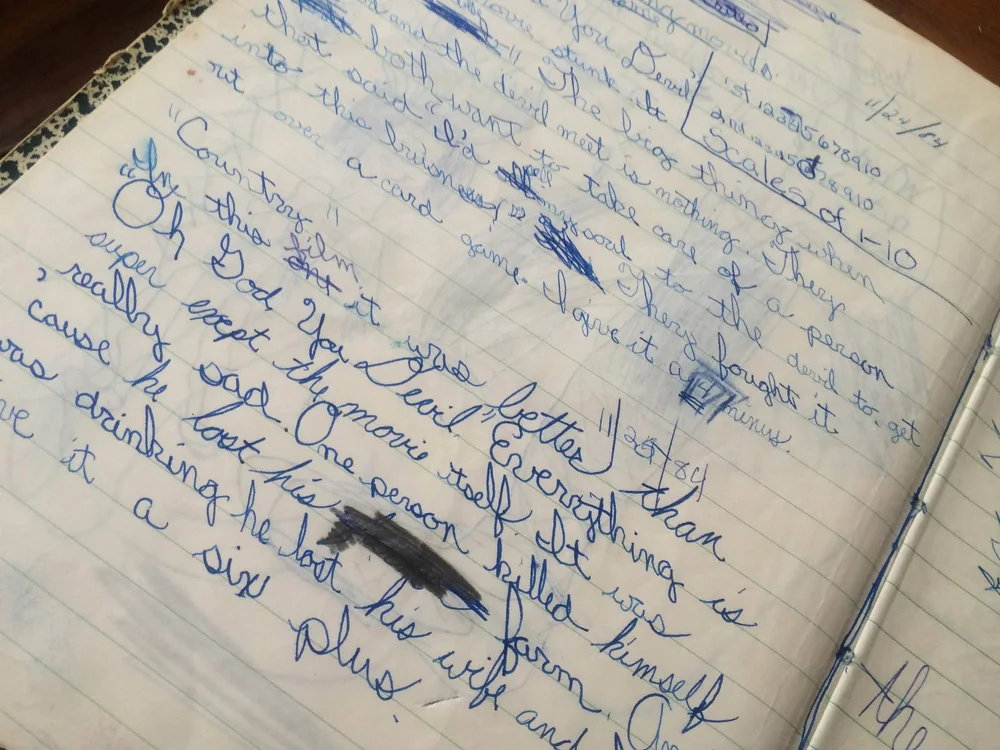 11/24/84
1st 12345678910
2nd 12345678910
Scales of 1-10
You Devil"
movie stunk. It
The big thing, when
and the devil meet is nothing. They
both want to take care of a person
that said "I'd sell my soul to the devil to get
into this business!" They fought it
out over a card game. I give it a 4 minus.
"Country" 11/25/84
"In this film it was better than
"Oh God You Devil" Everything is
super exept the movie itself. It was
really sad. One person killed himself
cause he lost his farm. One
was drinking he lost his wife and
give it a six plus.
the